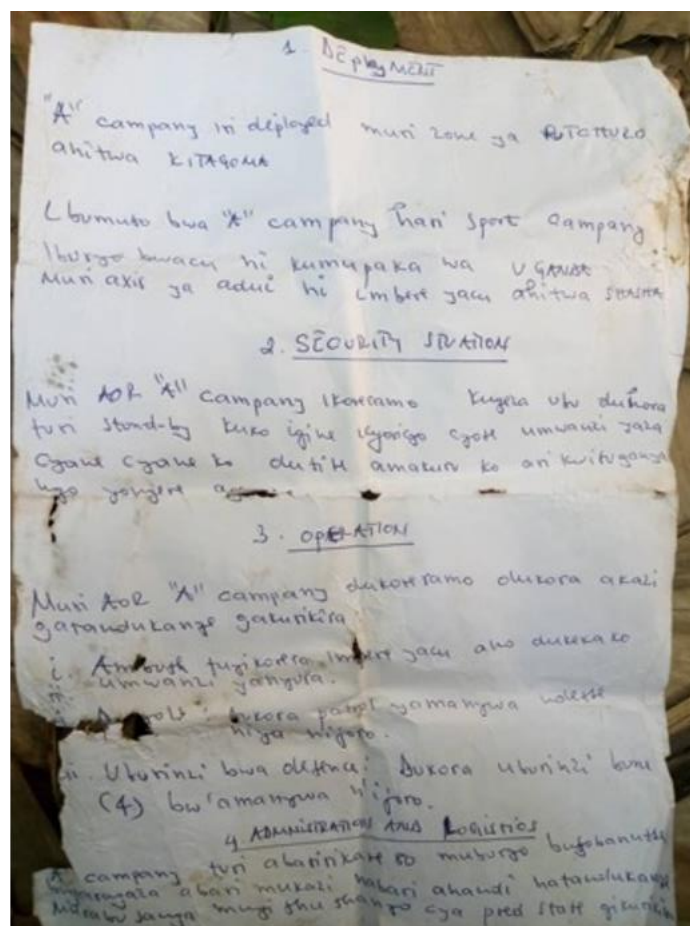 1. DEployMENT
"A" campany iri deployed muri zone ya RUTCHURO
ahitwa KITAGOMA
Ibumoso bwa "A" campany hari Sport Campany
Iburyo bwacu ni kumupaka wa UGANDA
Muri axis ya aduí ni imbere yacu ahitwa SHASHA
2. SECURITY SITUATION
Muri AOR "A" campany Ikoreramo Kugeza ubu dukora
turi stand-by kuko igihe icyaricyo cyose umwanzi yaza
cyane cyane ko dufite amakuru ko ari kwitegura
ngo yongere
3. OPERATION
Muri AOR "A" campany dukoreramo dukora akazi
gatandukanye gakurikira
i. Ambush tuzikorera imbere yacu aho dukeka ko
umwanzi yanyura.
dukora patrol yamanywa
niya nijoro.
Uburinzi bwa defence: Dukora uburinzi bune
(4) bw'amanywa n'ijoro.
4. ADMINISTRATION AND LOGISTICS
A campany turi abasirikare muburyo
abari mukazi nabari ahandi hatandukanye